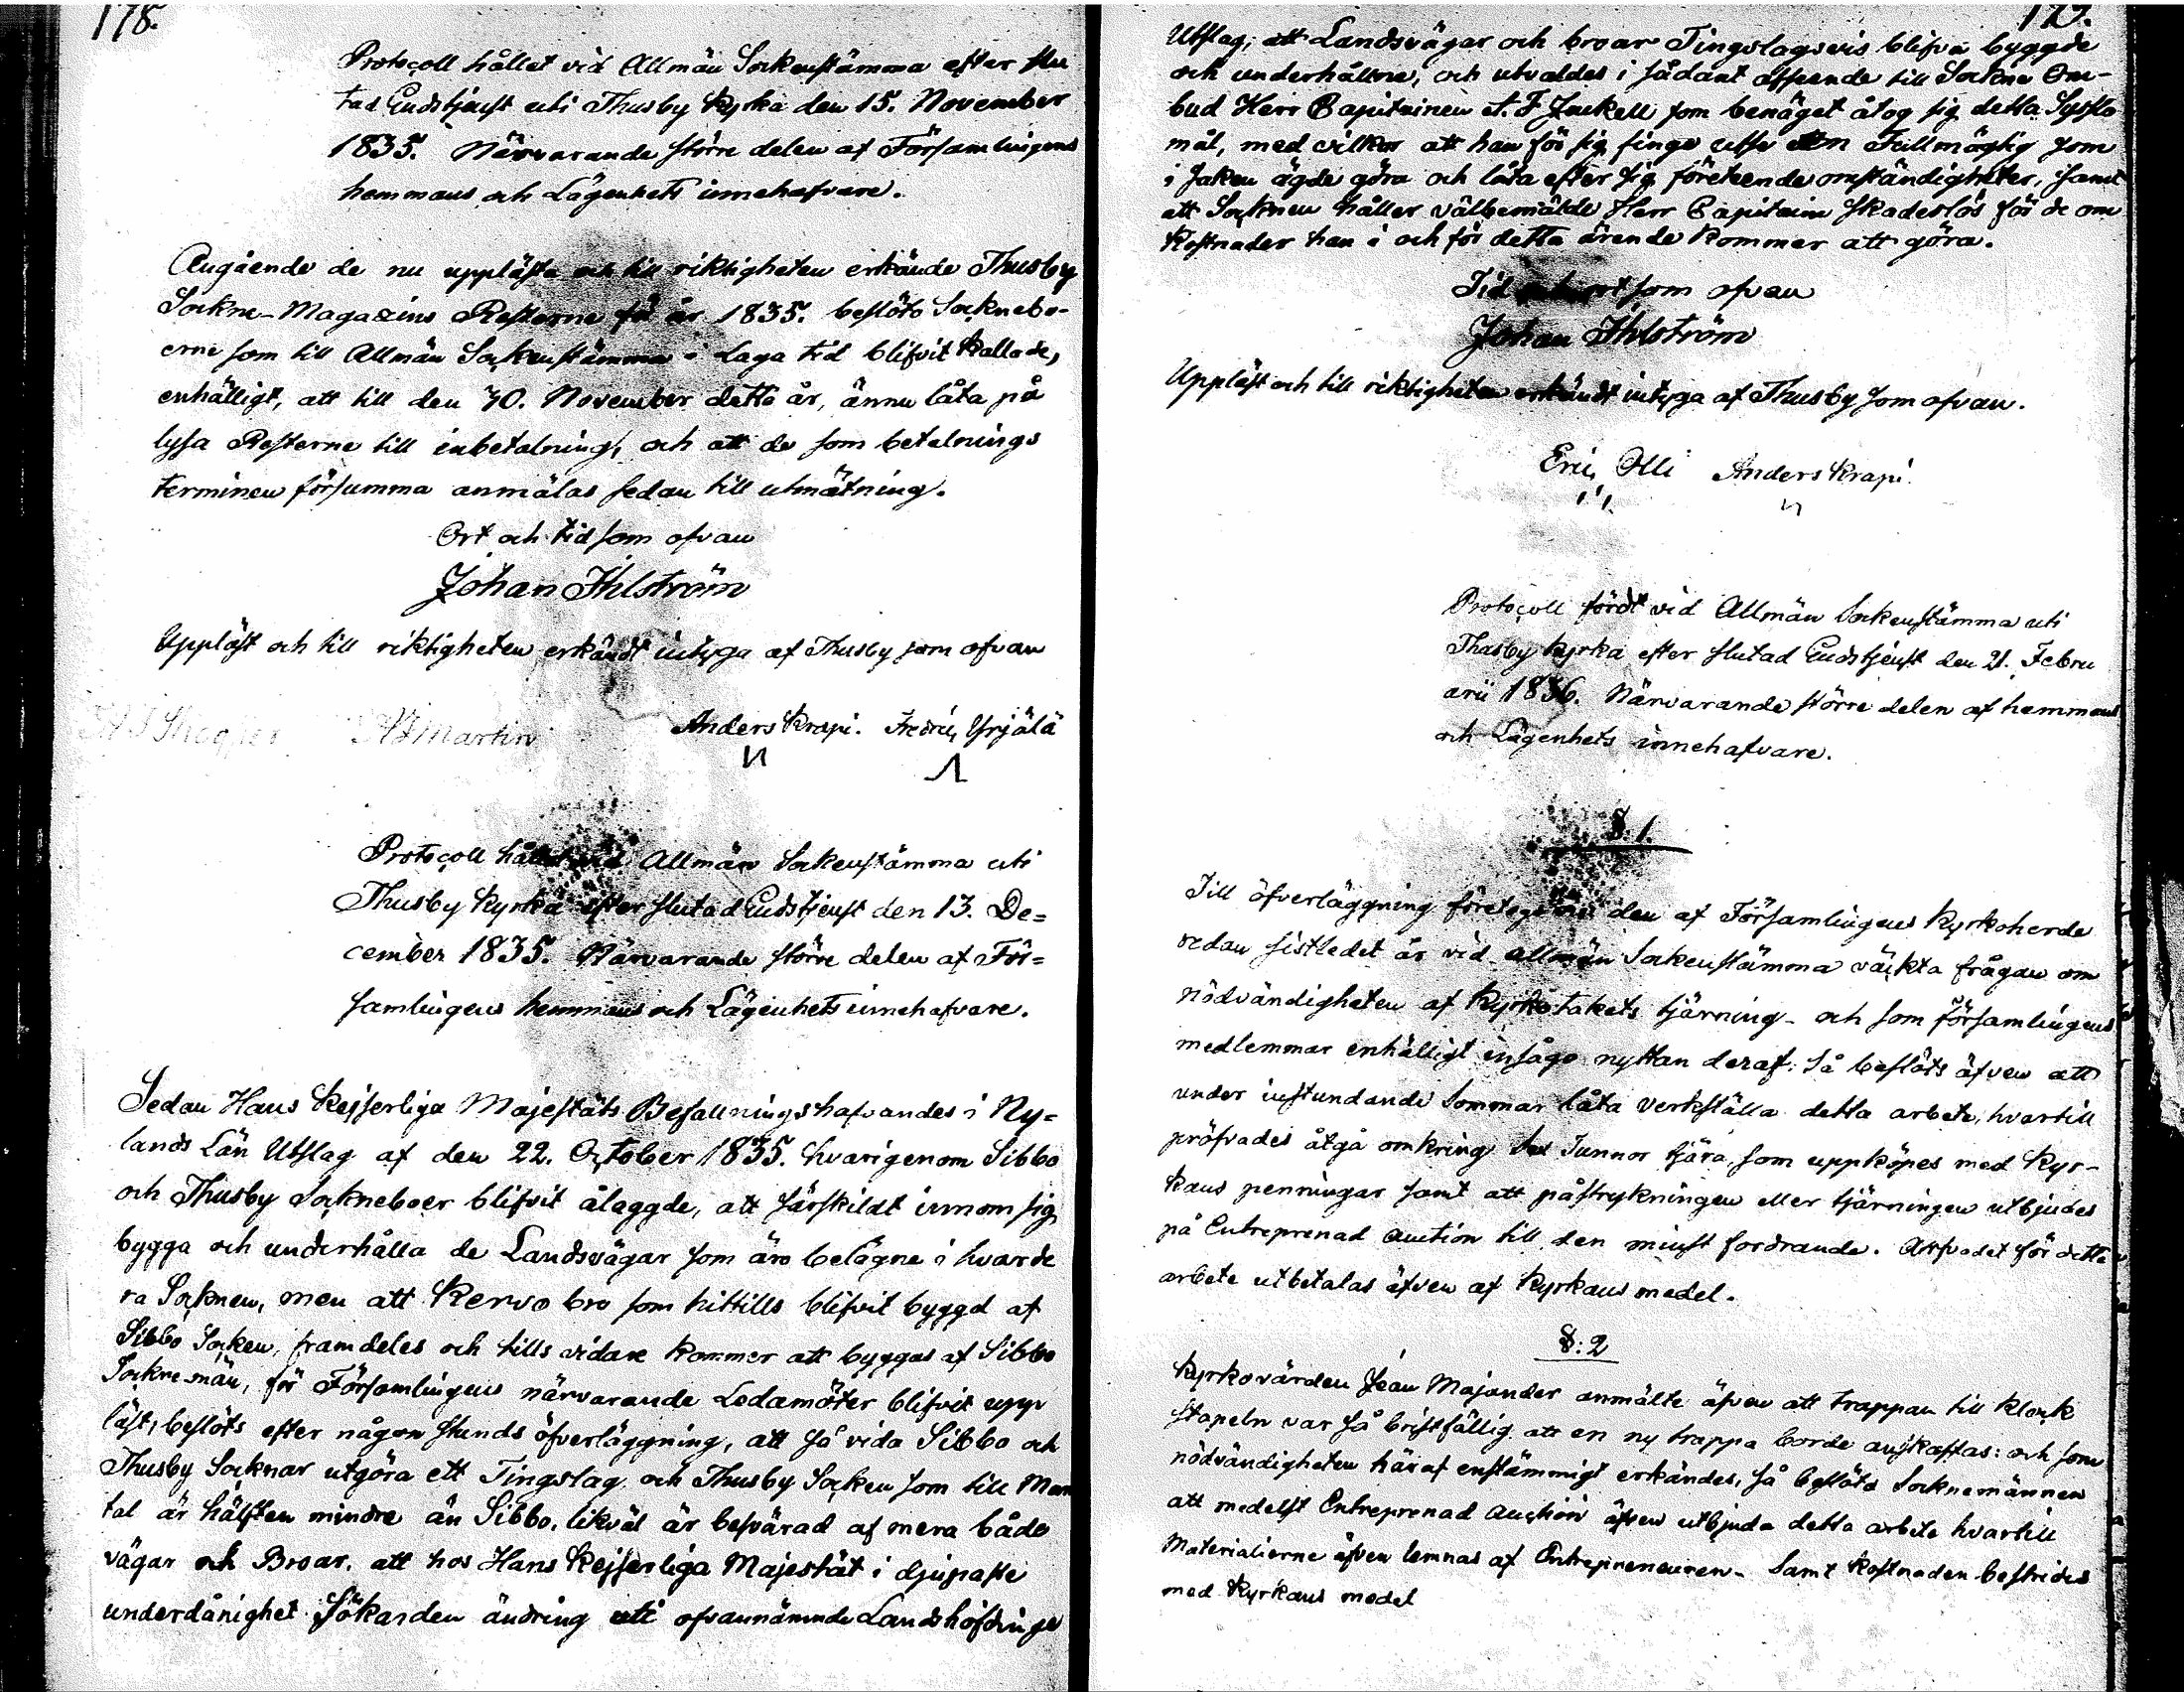 178.
Protocoll hållet vid Allmän Sockenstämma efter slu
tad Gudstjenst uti Thusby Kyrka den 15. November
1835. Närvarande större delen af Församlingens
hemmans och Lägenhets innehafvare.
Angående de nu uppläste och till riktigheten erkände Thusby
Sockne-Magazins Resterne för år 1835. beslöto Sockneboerne
erne som till Allmän Sockenstämma i laga tid blifvit kallade,
enhälligt, att till den 30. November detta år, ännu låta på
lysa Resterne till inbetalning, och att de som betalnings
terminen försumma anmälas sedan till utmätning.
Ort och tid som ofvan
Johan Ihlström
Uppläst och till riktigheten erkändt intyga af Thusby som ofvan
Anders Krapi. Fredric Yrjälä
Protocoll hållet vid Allmän Sockenstämma uti
Thusby Kyrka efter slutad Gudstjenst den 13. De=
cember 1835. Närvarande större delen af För=
samlingens hemmans och Lägenhets innehafvare.
Sedan Hans Kejserliga Majestäts Befallningshafvandes i Ny=
lands Län Utslag af den 22. October 1835. hvarigenom Sibbo
och Thusby Sockneboer blifvit ålaggde, att särskildt innom sig
bygga och underhålla de Landsvägar som äro belägne i hvarde
ra Socknen, men att Kervo bro som hittills blifvit byggd af
Sibbo Socken, framdeles och tills vidare kommer att byggas af Sibbo
Socknemän, för Församlingens närvarande Ledamöter blifvit upp
läst, beslöts efter någon stunds öfverläggning, att så vida Sibbo och
Thusby Socknar utgöra ett Tingslag och Thusby Socken som till Man
tal är hälften mindre än Sibbo, likväl är besvärad af mera både
vägar och Broar, att hos Hans Kejserliga Majestät i djupaste
underdånighet söka den ändring uti ofvannämnde Landshöfdinge
Utslag, att Landsvägar och broar Tingslagsvis blifva byggde
och underhållne, och utvaldes i sådant afseende till Sockne Om-
bud Herr Capitainen A. F. Jackell som benäget åtog sig detta Syslo
mål, med vilkor att han för sig finge utse en Fullmägtig som
i saken ägde göra och låta efter sig företeende omständigheter, samt
att Socknen håller välbemälde Herr Capitain skadeslös för de om
kostnader han i och för detta ärende kommer att göra.
Tid och ort som ofvan
Johan Ihlström
Uppläst och till riktigheten erkändt intyga af Thusby som ofvan.
Eric Olli Anders Krapi.
Protocoll fördt vid Allmän Sockenstämma uti
Thusby Kyrka efter slutad Gudstjenst den 21. Febru
arii 1836. Närvarande större delen af hemmans
och Lägenhets innehafvare.
§. 1.
Till öfverläggning företogs den af Församlingens Kyrkoherde
redan sistledet år vid allmän Sockenstämma väckta frågan om
nödvändigheten af Kyrkotakets tjärning - och som församlingens
medlemmar enhälligt insågo nyttan deraf: Så beslöts äfven att
under instundande Sommar låta verkställa detta arbete, hvartill
pröfvades åtgå omkring Tunnor tjära, som uppköpes med Kyr-
kans penningar samt att påstrykningen eller tjärningen utbjudes
på Entreprenad auction till den minst fordrande. Arfvodet för detta
arbete utbetalas äfven af Kyrkans medel.
§: 2
Kyrkovärden Jean Majander anmälte äfven att trappan till Klock
stapeln var så bristfällig att en ny trappa borde anskaffas: och som
nödvändigheten häraf enstämmigt erkändes, så beslöto Socknemännen
att medelst Entreprenad auction äfven utbjuda detta arbete hvartill
Materialierne äfven lemnas af Entrepreneuren - Samt kostnaden bestrides
med Kyrkans medel